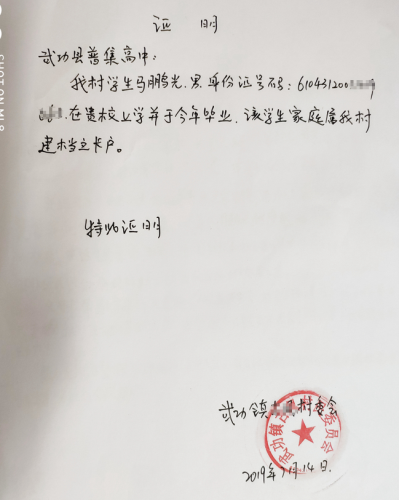 证 明
武功县普集高中：
我村学生马鹏光,男,身份证号码：610431200
在贵校上学并于今年毕业,该学生家庭属我村
建档立卡户。
特此证明
武功镇 村委会
2019年7月14日.
SHOT ON MI 8